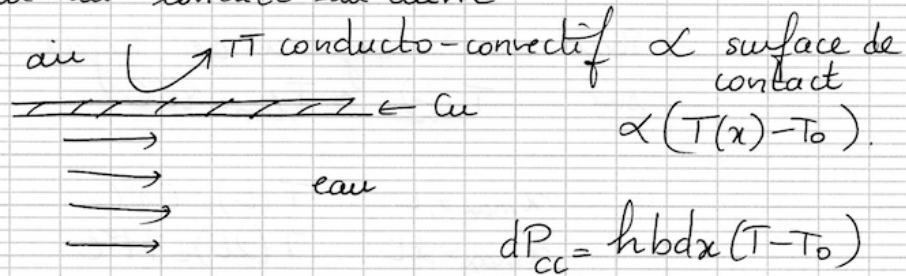 air TT conducto-convectif ∝ surface de
contact
← Cu
∝ (T(x)-T₀).
eau
dP_cc = hbdx(T-T₀)